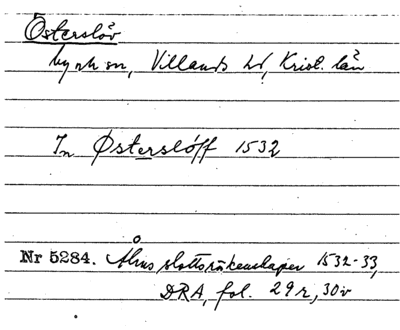 Österslöv
by o sn, Villands hd, Krist. län
In Østerslöff 1532
Nr 5284. Åhus slottsräkenskaper 1532-33,
DRA, fol. 29r, 30v